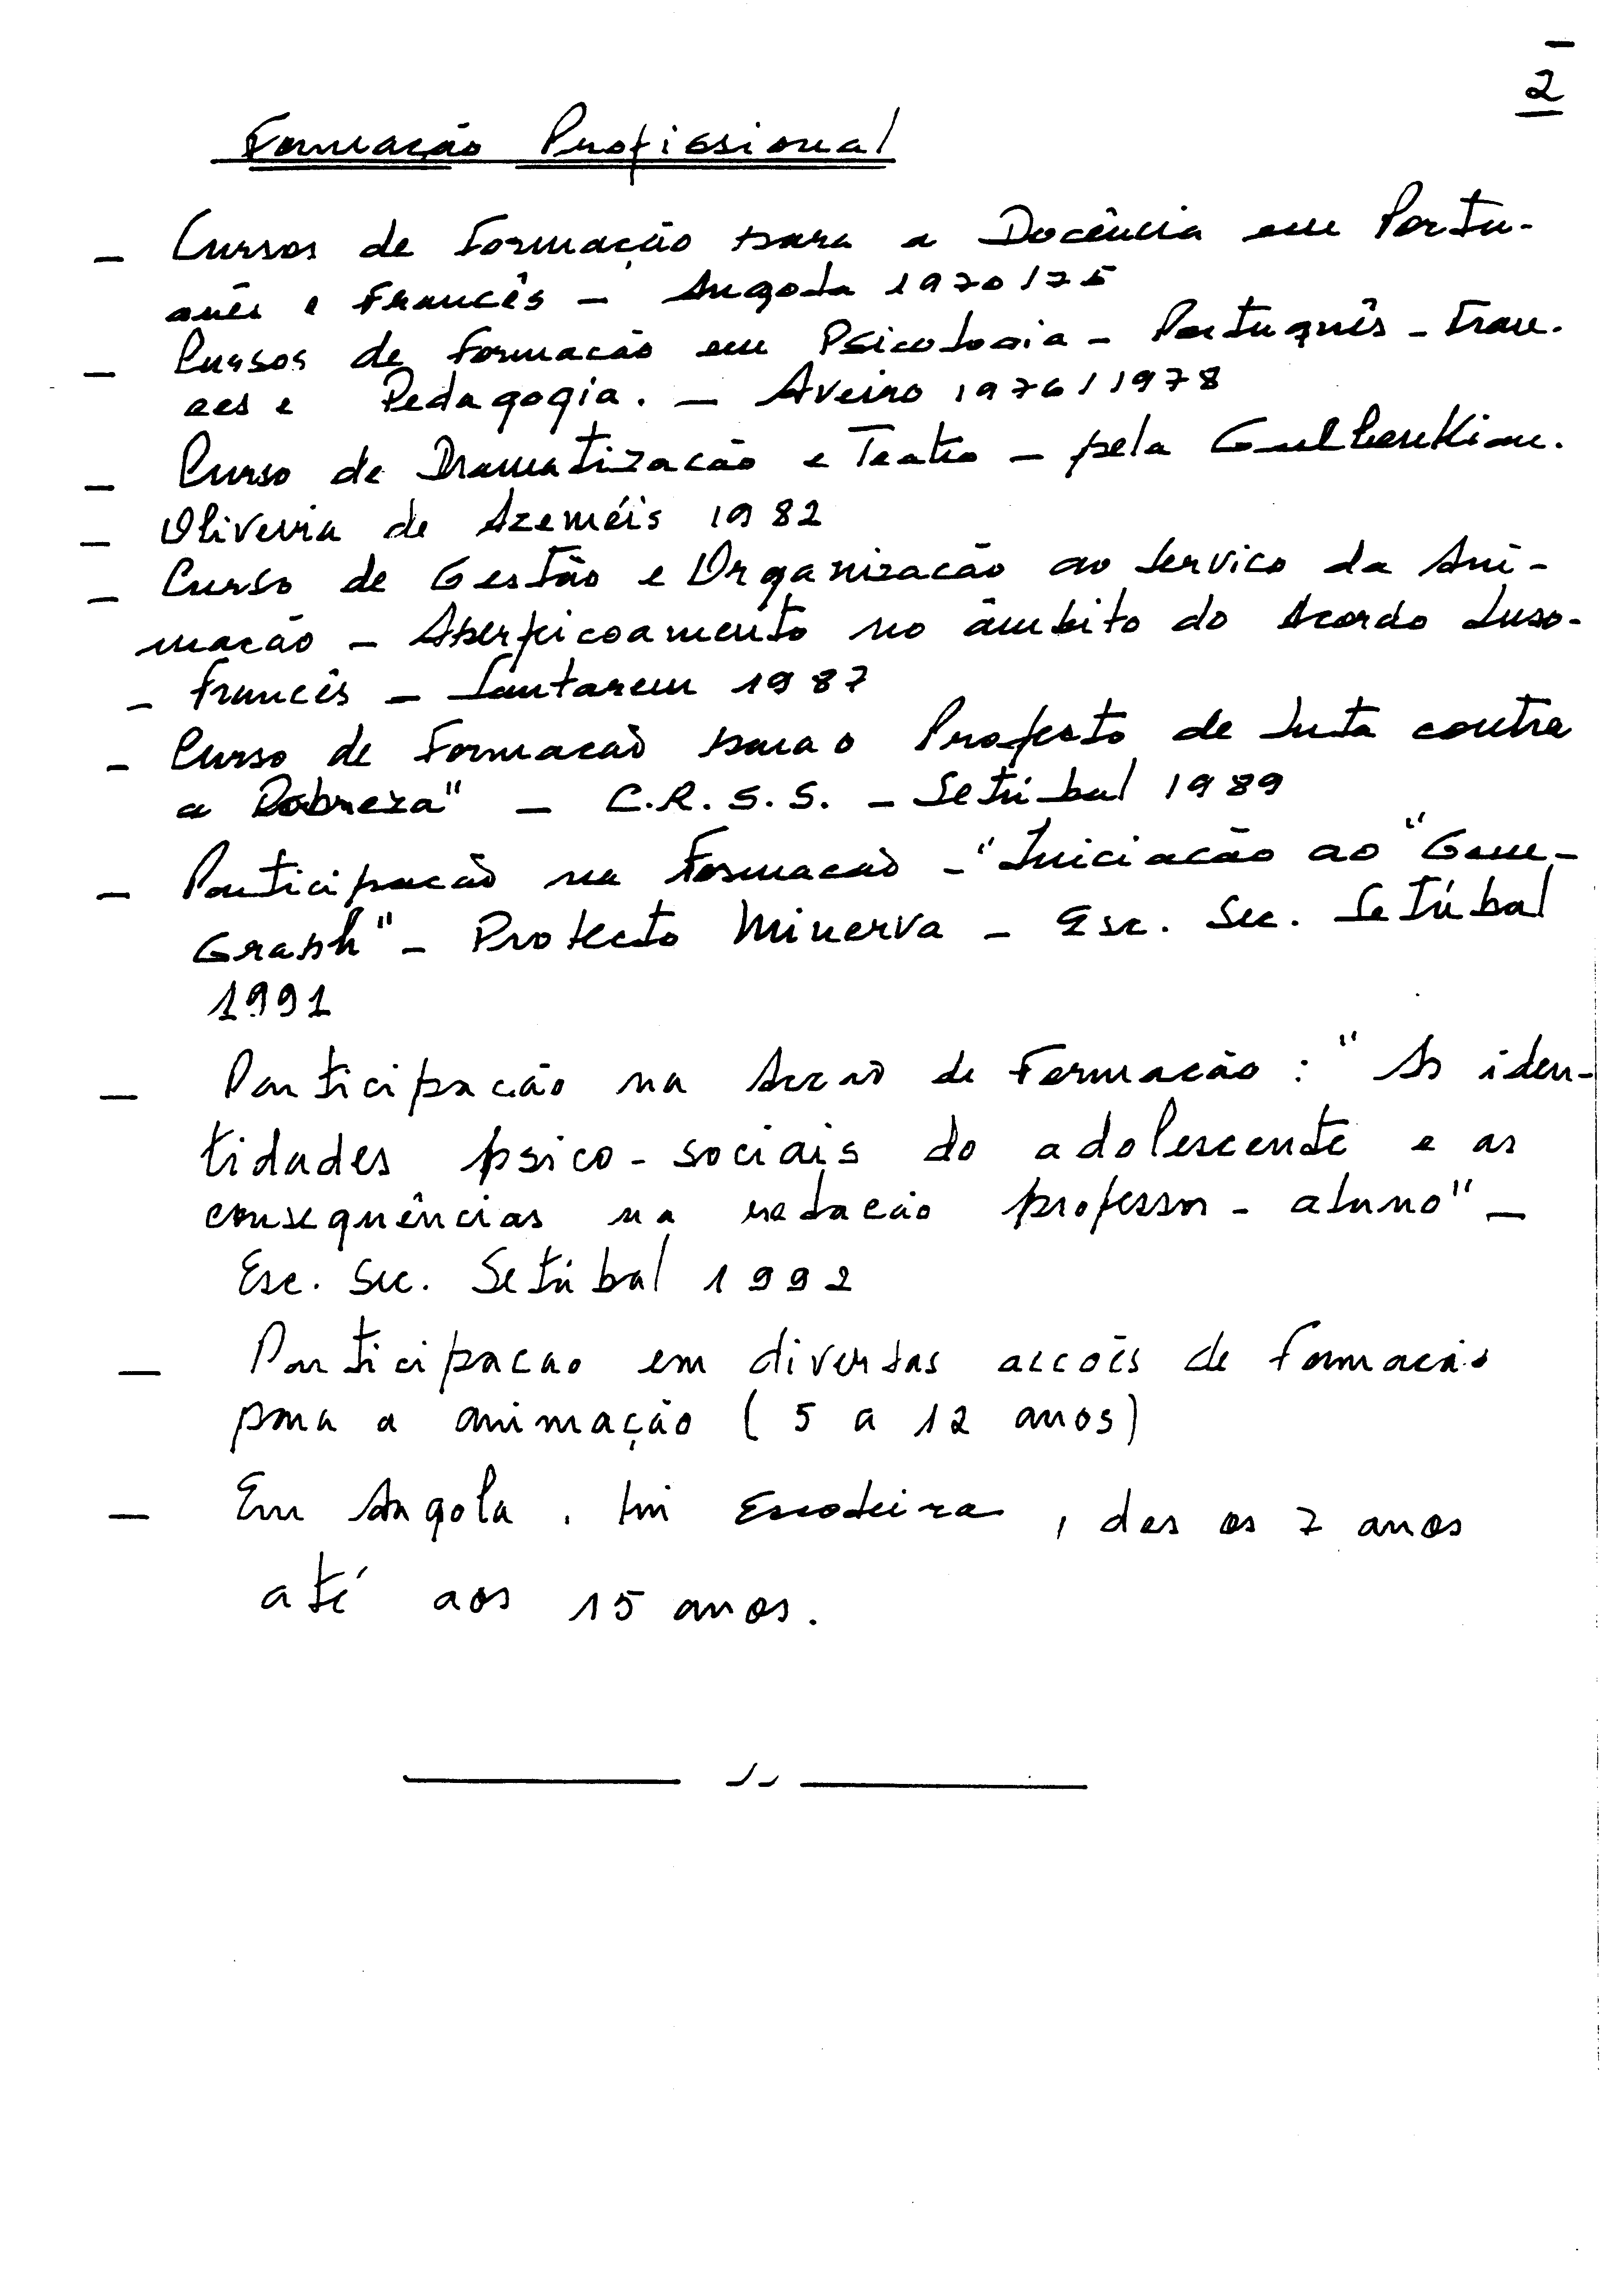 2
Formação Profissional
- Cursos de Formação para a Docência em Portu-
guês e Francês - Angola 1970/75
- Cursos de Formação em Psicologia - Português - Fran-
ces e Pedagogia. - Aveiro 1976/1978
- Curso de Dramatização e Teatro - pela Gulbenkian.
- Oliveira de Azeméis 1982
- Curso de Gestão e Organização ao Serviço da Ani-
mação - Aperfeiçoamento no âmbito do Acordo Luso-
- Francês - Santarem 1987
- Curso de Formação para o Projecto de Luta contra
a Pobreza" - C.R.S.S. - Setúbal 1989
- Participação na Formação - "Iniciação ao "Gem-
Graph" - Protecto Minerva - Esc. Sec. Setúbal
1991
- Participação na Acção de Formação : "As iden-
tidades psico-sociais do adolescente e as
consequências na relação professor-aluno" -
Esc. Sec. Setúbal 1992
- Participacao em diversas acções de formação
para a animação (5 a 12 anos)
- Em Angola, fui Escoteira, des os 7 anos
até aos 15 anos.